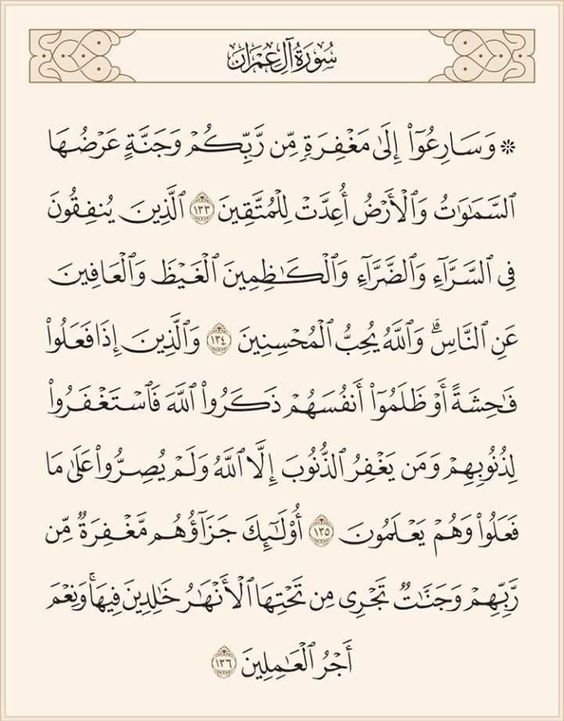 سُورَةُ آلِ عِمْرَان
۞ وَسَارِعُوٓا۟ إِلَىٰ مَغْفِرَةٍ مِّن رَّبِّكُمْ وَجَنَّةٍ عَرْضُهَا
ٱلسَّمَٰوَٰتُ وَٱلْأَرْضُ أُعِدَّتْ لِلْمُتَّقِينَ ١٣٣ ٱلَّذِينَ يُنفِقُونَ
فِى ٱلسَّرَّآءِ وَٱلضَّرَّآءِ وَٱلْكَٰظِمِينَ ٱلْغَيْظَ وَٱلْعَافِينَ
عَنِ ٱلنَّاسِ ۗ وَٱللَّهُ يُحِبُّ ٱلْمُحْسِنِينَ ١٣٤ وَٱلَّذِينَ إِذَا فَعَلُوا۟
فَٰحِشَةً أَوْ ظَلَمُوٓا۟ أَنفُسَهُمْ ذَكَرُوا۟ ٱللَّهَ فَٱسْتَغْفَرُوا۟
لِذُنُوبِهِمْ وَمَن يَغْفِرُ ٱلذُّنُوبَ إِلَّا ٱللَّهُ وَلَمْ يُصِرُّوا۟ عَلَىٰ مَا
فَعَلُوا۟ وَهُمْ يَعْلَمُونَ ١٣٥ أُو۟لَٰٓئِكَ جَزَآؤُهُم مَّغْفِرَةٌ مِّن
رَّبِّهِمْ وَجَنَّٰتٌ تَجْرِى مِن تَحْتِهَا ٱلْأَنْهَٰرُ خَٰلِدِينَ فِيهَا ۚ وَنِعْمَ
أَجْرُ ٱلْعَٰمِلِينَ ١٣٦